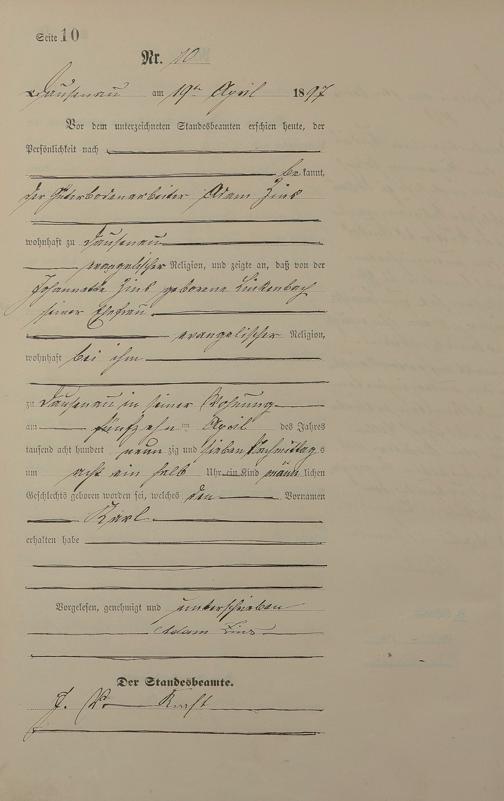 Seite 10
Nr. 10
Dausenau am 19ten April 1897
Vor dem unterzeichneten Standesbeamten erschien heute, der
Persönlichkeit nach
be kannt,
der Güterbodenarbeiter Adam Zins
wohnhaft zu Dausenau
evangelischer Religion, und zeigte an, daß von der
Johannette Zins geborene Linkenbach
seiner Ehefrau
evangelischer Religion,
wohnhaft bei ihm
zu Dausenau in seiner Wohnung
am fünfzehn ten April des Jahres
tausend acht hundert neun zig und sieben Nachmittags
um acht ein halb Uhr ein Kind männ lichen
Geschlechts geboren worden sei, welches den Vornamen
Karl
erhalten habe
Vorgelesen, genehmigt und unterschrieben
Adam Zins
Der Standesbeamte.
J. V.